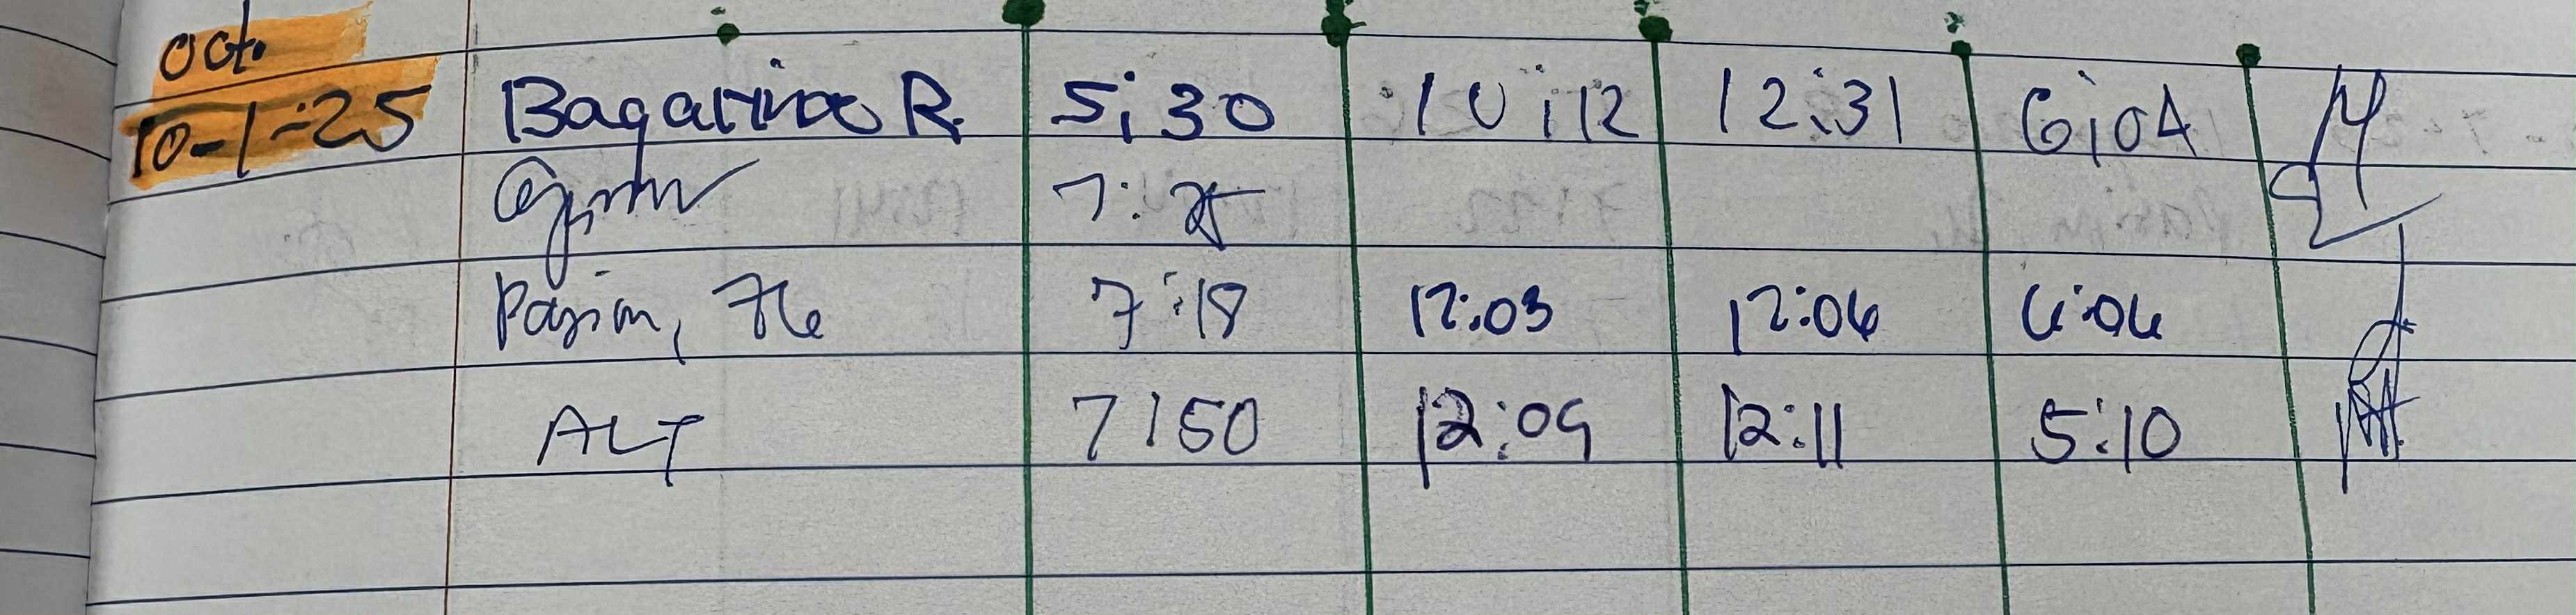 Oct.
10-1-25 Bagarinao R. 5:30 10:12 12:31 6:04
7:25
Pajim, 7:18 12:03 12:06 6:06
ALT 7:50 12:09 12:11 5:10